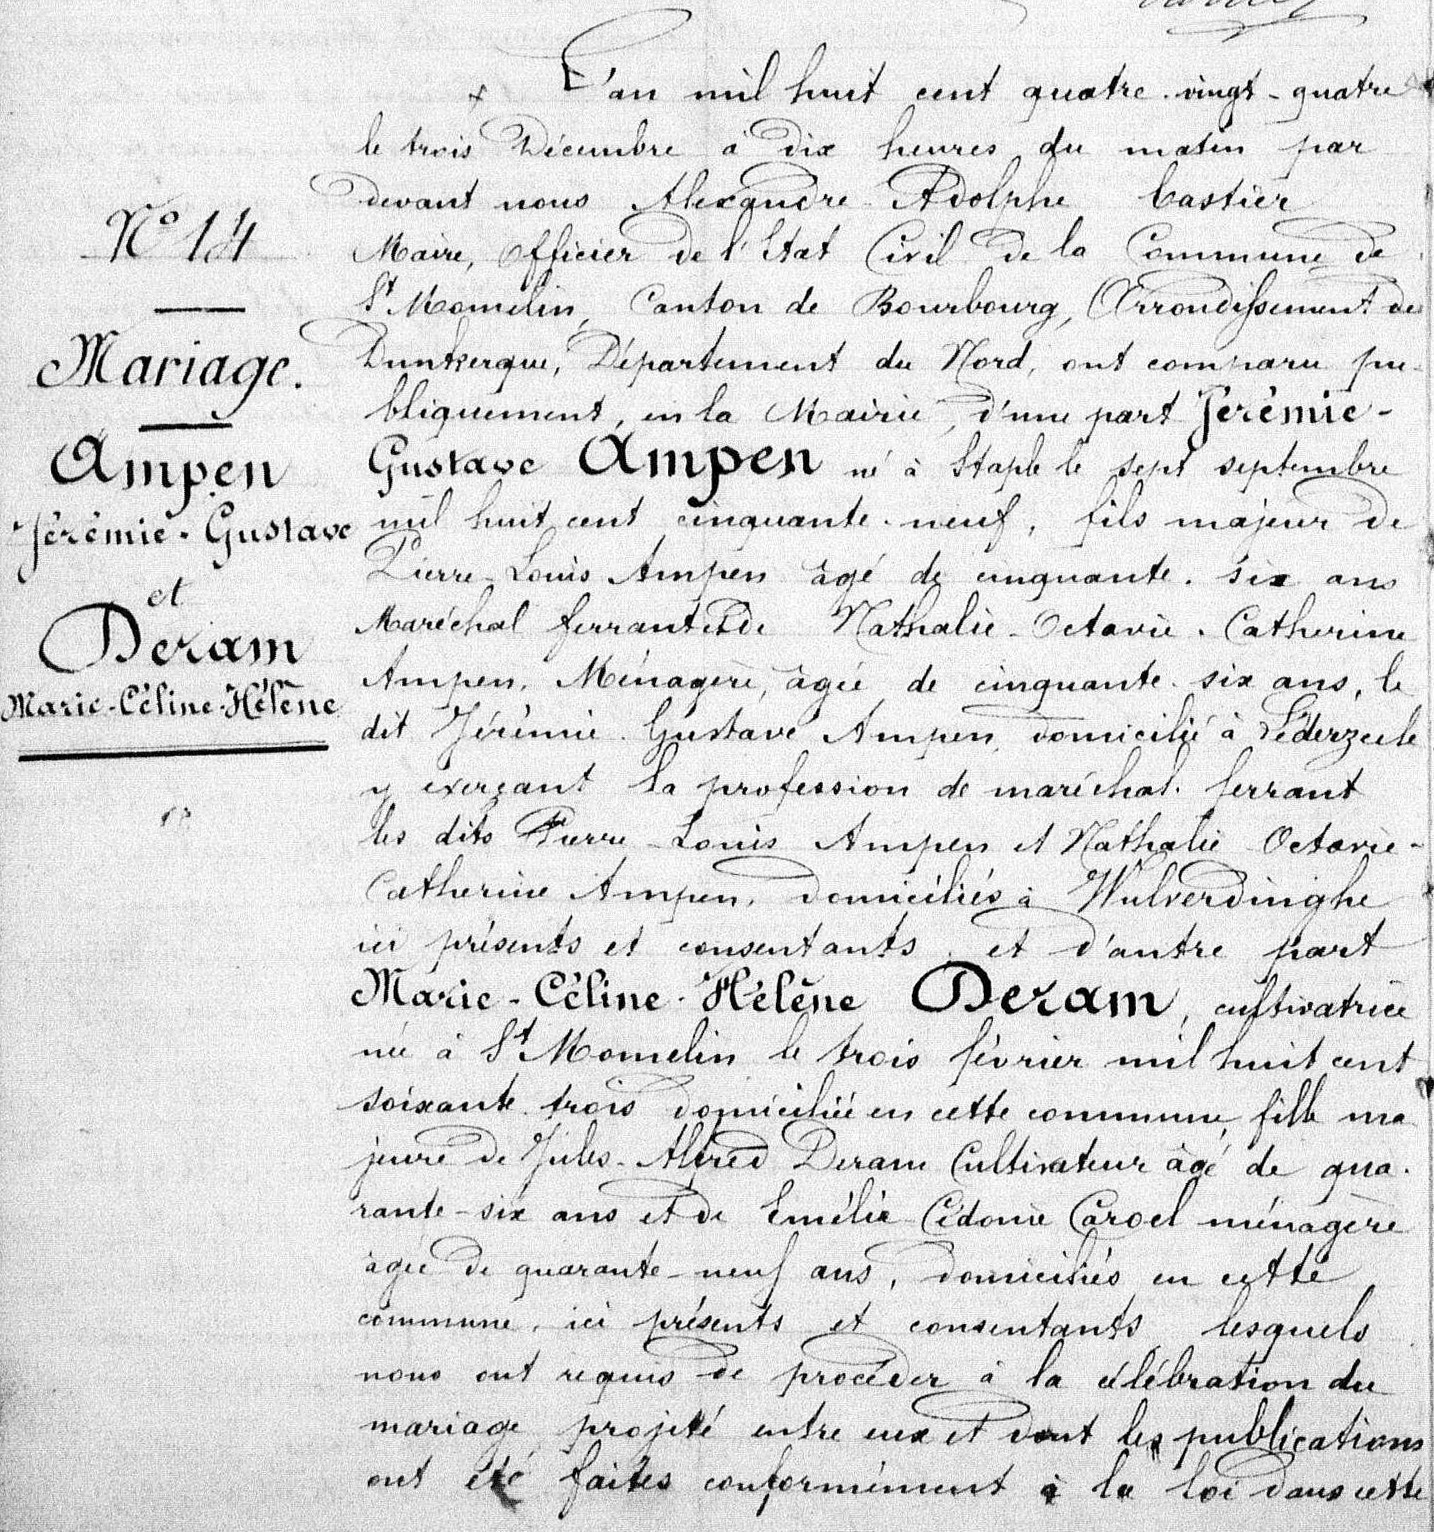 N° 14
Mariage.
Ampen
Jérémie-Gustave
et
Deram
Marie-Céline-Hélène
L'an mil huit cent quatre-vingt-quatre
le trois Décembre à dix heures du matin par
devant nous Alexandre Adolphe Castier
Maire, Officier de l'Etat Civil de la Commune de
St Momelin, Canton de Bourbourg, Arrondissement de
Dunkerque, Département du Nord, ont comparu pu-
bliquement, en la Mairie, d'une part Jérémie-
Gustave Ampen né à Staple le sept septembre
mil huit cent cinquante-neuf, fils majeur de
Pierre-Louis Ampen âgé de cinquante-six ans
Maréchal ferrant et de Nathalie-Octavie-Catherine
Ampen, Ménagère, âgée de cinquante-six ans, le
dit Jérémie Gustave Ampen, domicilié à Lederzeele
y exerçant la profession de maréchal-ferrant
les dits Pierre-Louis Ampen et Nathalie Octavie-
Catherine Ampen, domiciliés à Wulverdinghe
ici présents et consentants, et d'autre part
Marie-Céline-Hélène Deram, cultivatrice
née à St Momelin le trois février mil huit cent
soixante-trois domiciliée en cette commune, fille ma
jeure de Jules-Alfred Deram Cultivateur âgé de qua-
rante-six ans et de Emélie Cédonie Caroel ménagère
âgée de quarante-neuf ans, domiciliés en cette
commune, ici présents et consentants lesquels
nous ont requis de procéder à la célébration du
mariage projeté entre eux et dont les publications
ont été faites conformément à la loi dans cette